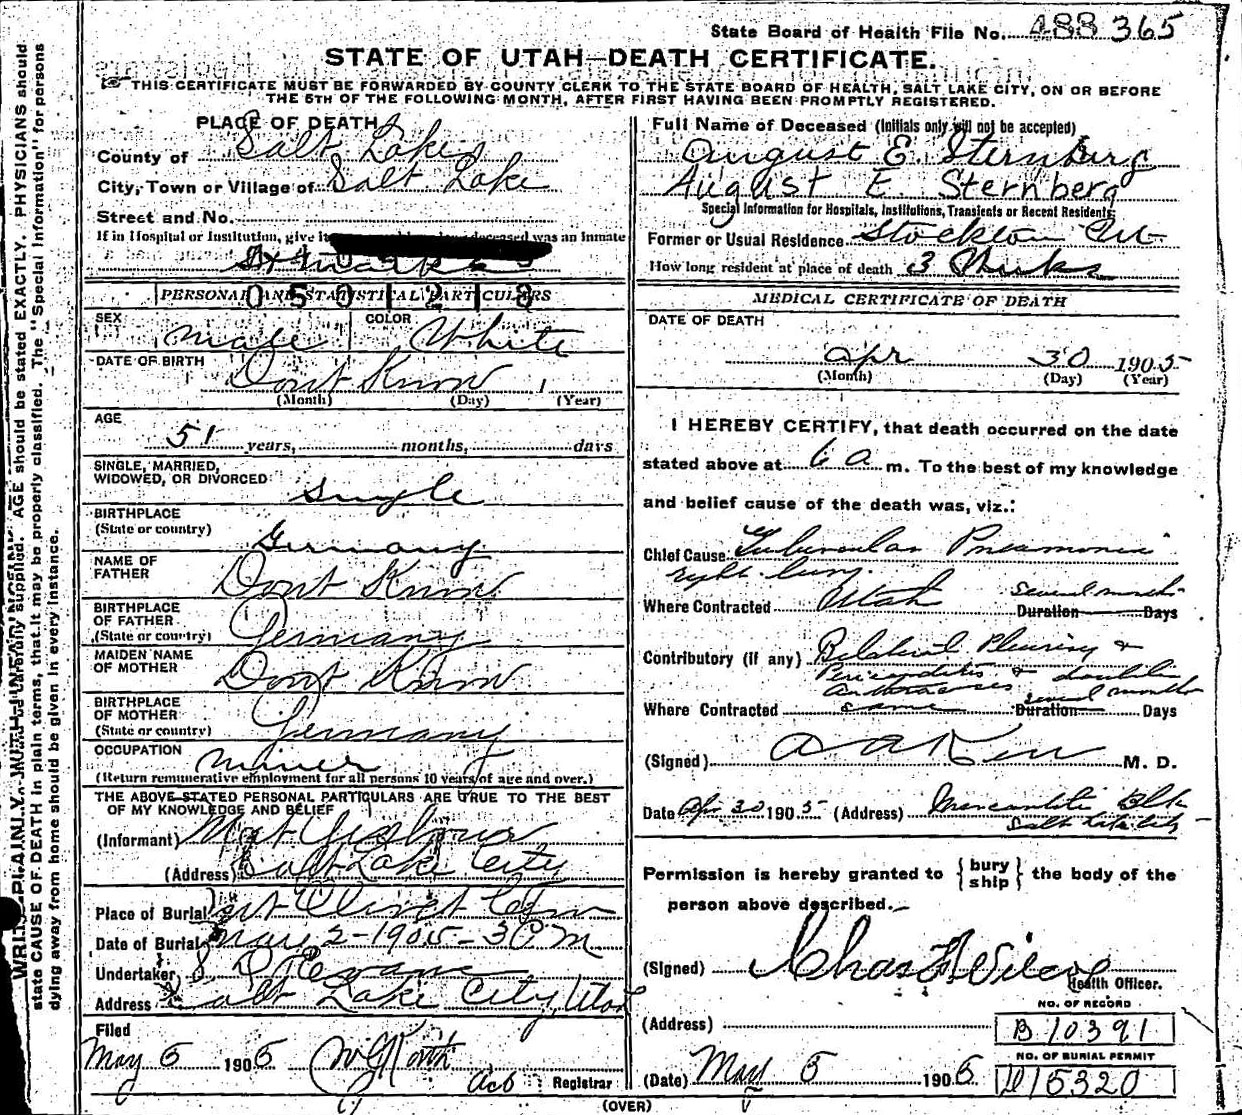 State Board of Health File No. 488 365
STATE OF UTAH—DEATH CERTIFICATE.
THIS CERTIFICATE MUST BE FORWARDED BY COUNTY CLERK TO THE STATE BOARD OF HEALTH, SALT LAKE CITY, ON OR BEFORE
THE 5TH OF THE FOLLOWING MONTH, AFTER FIRST HAVING BEEN PROMPTLY REGISTERED.
PLACE OF DEATH
County of Salt Lake
City, Town or Village of Salt Lake
Street and No.
If in Hospital or Institution, give its was an inmate
St Marks
050128
PERSONAL AND STATISTICAL PARTICULARS
SEX male COLOR White
DATE OF BIRTH Dont Know
(Month) (Day) (Year)
AGE
51 years, months, days
SINGLE, MARRIED,
WIDOWED, OR DIVORCED Single
BIRTHPLACE
(State or country) Germany
NAME OF
FATHER Dont Know
BIRTHPLACE
OF FATHER
(State or country) Germany
MAIDEN NAME
OF MOTHER Dont Know
BIRTHPLACE
OF MOTHER
(State or country) Germany
OCCUPATION Miner
(Return remunerative employment for all persons 10 years of age and over.)
THE ABOVE STATED PERSONAL PARTICULARS ARE TRUE TO THE BEST
OF MY KNOWLEDGE AND BELIEF
(Informant) Mat
(Address) Salt Lake City
Place of Burial Mt Olivet Cem
Date of Burial May 2-1905-3 P.M.
Undertaker S D Evans
Address Salt Lake City, Utah
Filed
May 5 1905
Registrar
Full Name of Deceased (Initials only will not be accepted)
August E. Sternburg
August E. Sternberg
Special Information for Hospitals, Institutions, Transients or Recent Residents
Former or Usual Residence Stockton Ut
How long resident at place of death 3 Weeks
MEDICAL CERTIFICATE OF DEATH
DATE OF DEATH
Apr 30 1905
(Month) (Day) (Year)
I HEREBY CERTIFY, that death occurred on the date
stated above at 6 a m. To the best of my knowledge
and belief cause of the death was, viz.:
Chief Cause Tubercular Pneumonia
right lung.
Where Contracted Utah Duration several months Days
Contributory (if any) Bilateral Pleurisy &
Pericarditis & double
Where Contracted same Duration several months Days
(Signed) M. D.
Date Apr 30 1905 (Address) Mercantile Blk
Salt Lake City
Permission is hereby granted to {bury ship} the body of the
person above described.
(Signed) Chas F Wilcox
Health Officer.
(Address)
NO. OF RECORD
B 10391
NO. OF BURIAL PERMIT
D 15320
(Date) May 5 1905
(OVER)
state CAUSE OF DEATH in plain terms, that it may be properly classified. The "Special Information" for persons
dying away from home should be given in every instance.